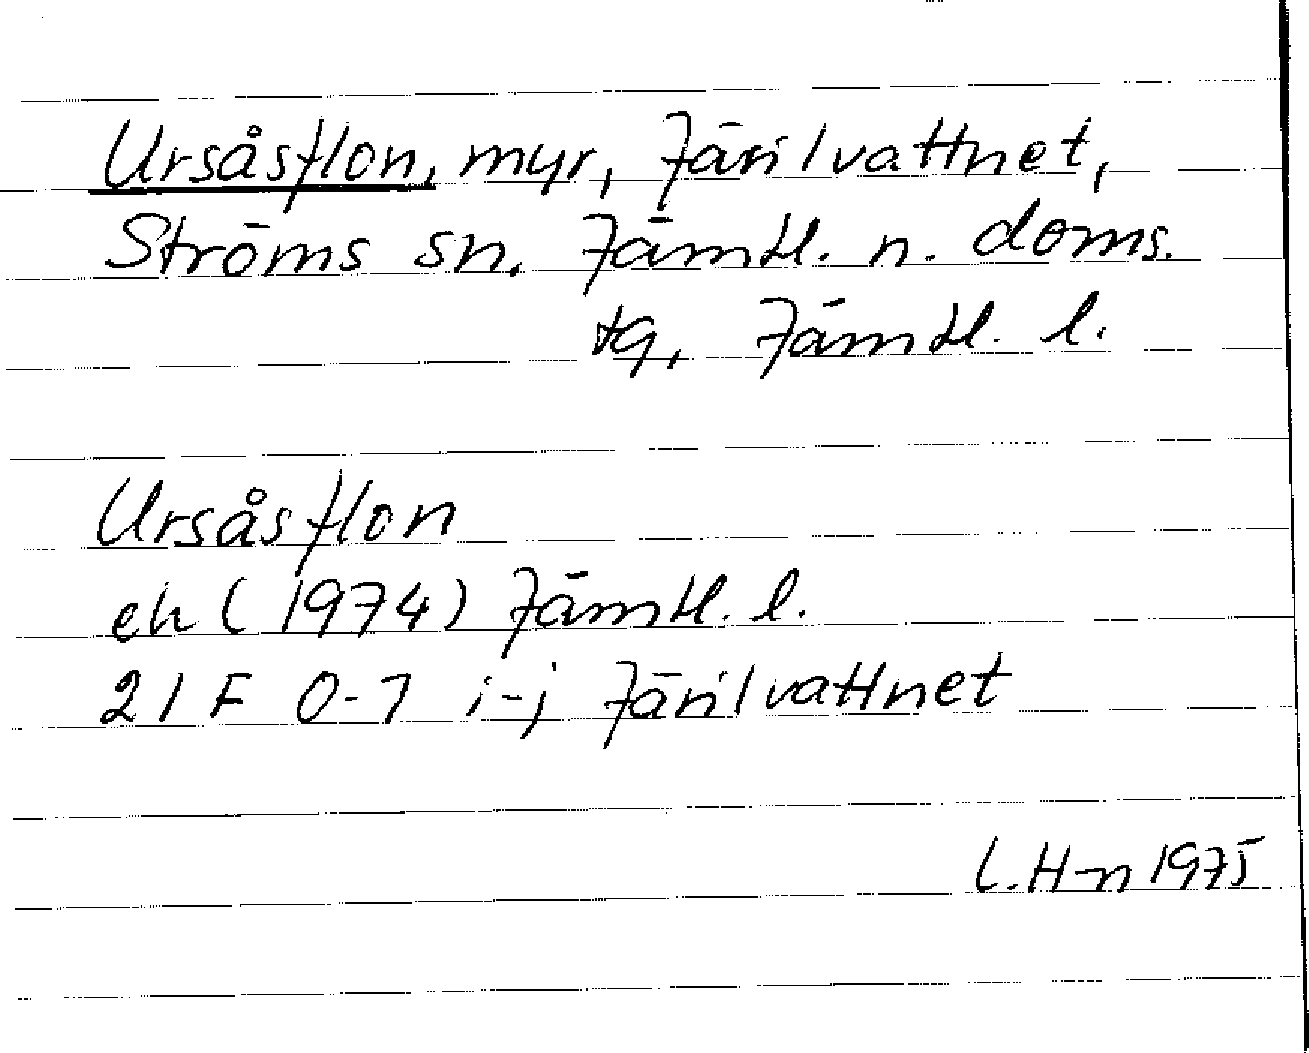 Ursåsflon, myr, Järilvattnet,
Ströms sn, Jämtl. n. doms.
tg, Jämtl. l.
Ursåsflon
ek (1974) Jämtl. l.
21 F 0-1 i-j Järilvattnet
L. H-n 1975